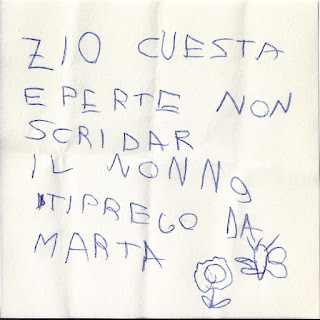 ZIO CUESTA
E PERTE NON
SCRIDAR
IL NONNO
TIPREGO DA
MARTA